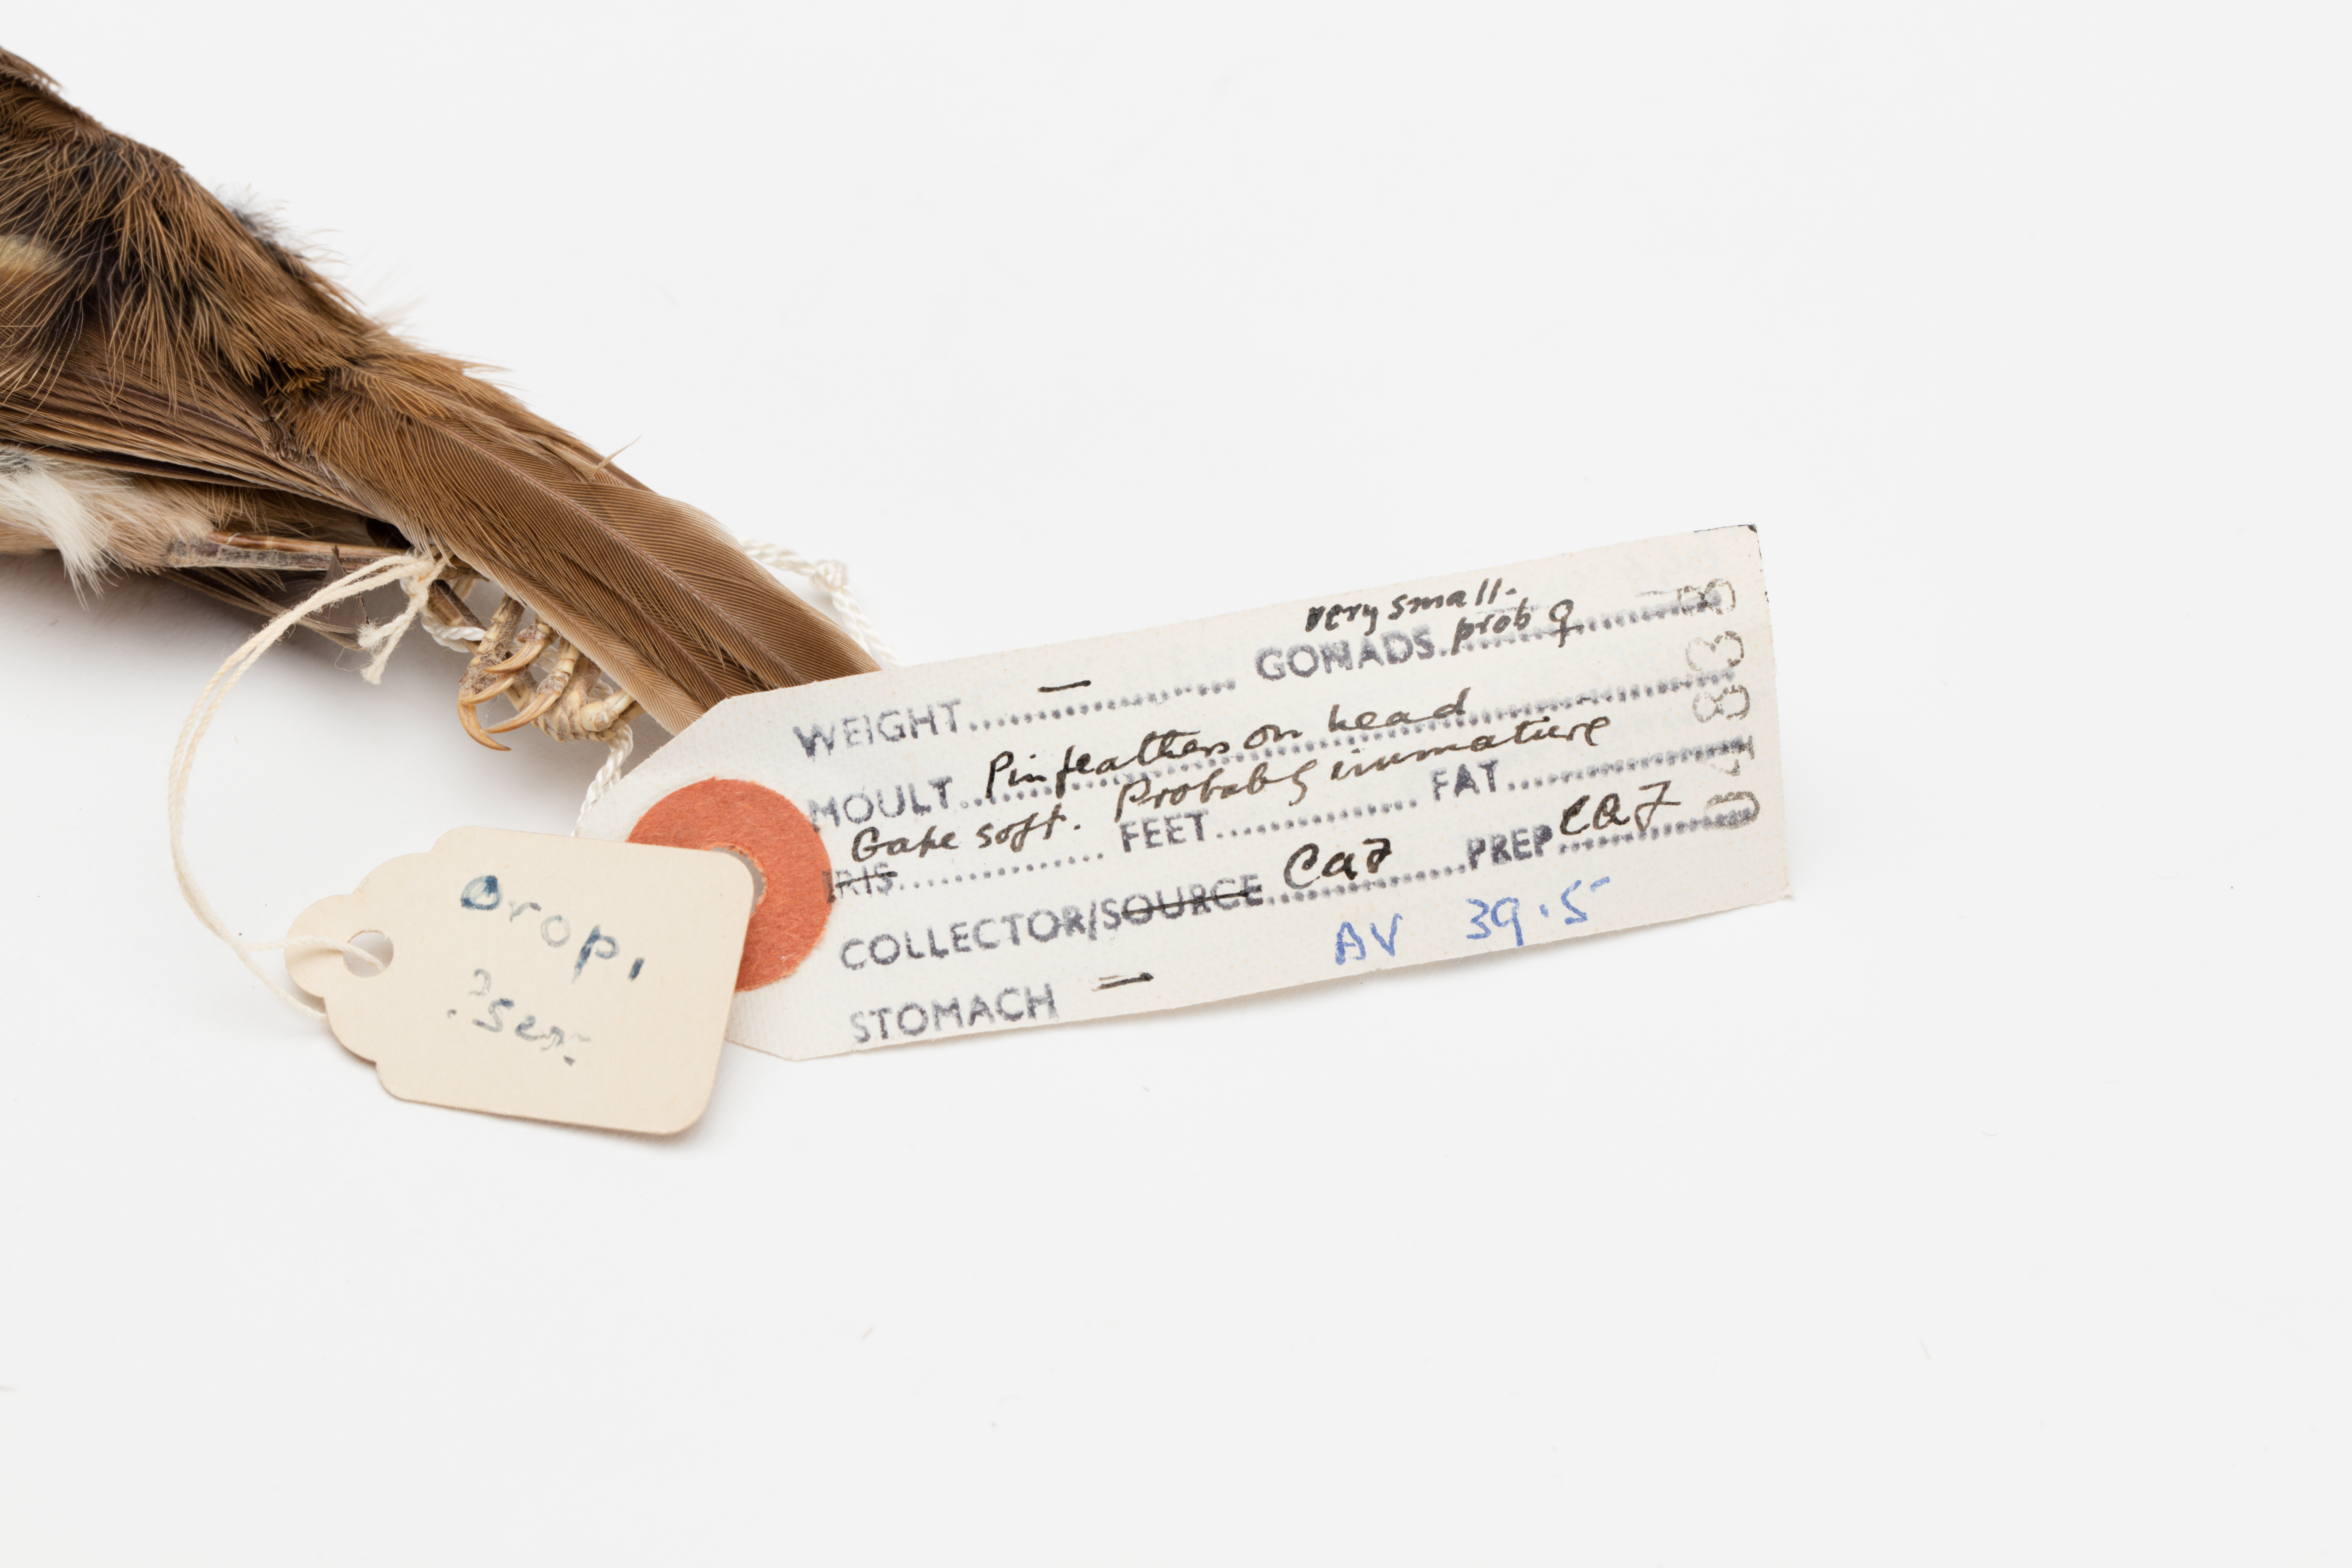 very small.
WEIGHT.......—....... GONADS. prob ♀
MOULT.. Pinfeathers on head
Gape soft. Probably immature
IRIS............ FEET............ FAT............
COLLECTOR/SOURCE.. CaF ......PREP CaF
STOMACH —
AV 39.5
Orop,
?Sex